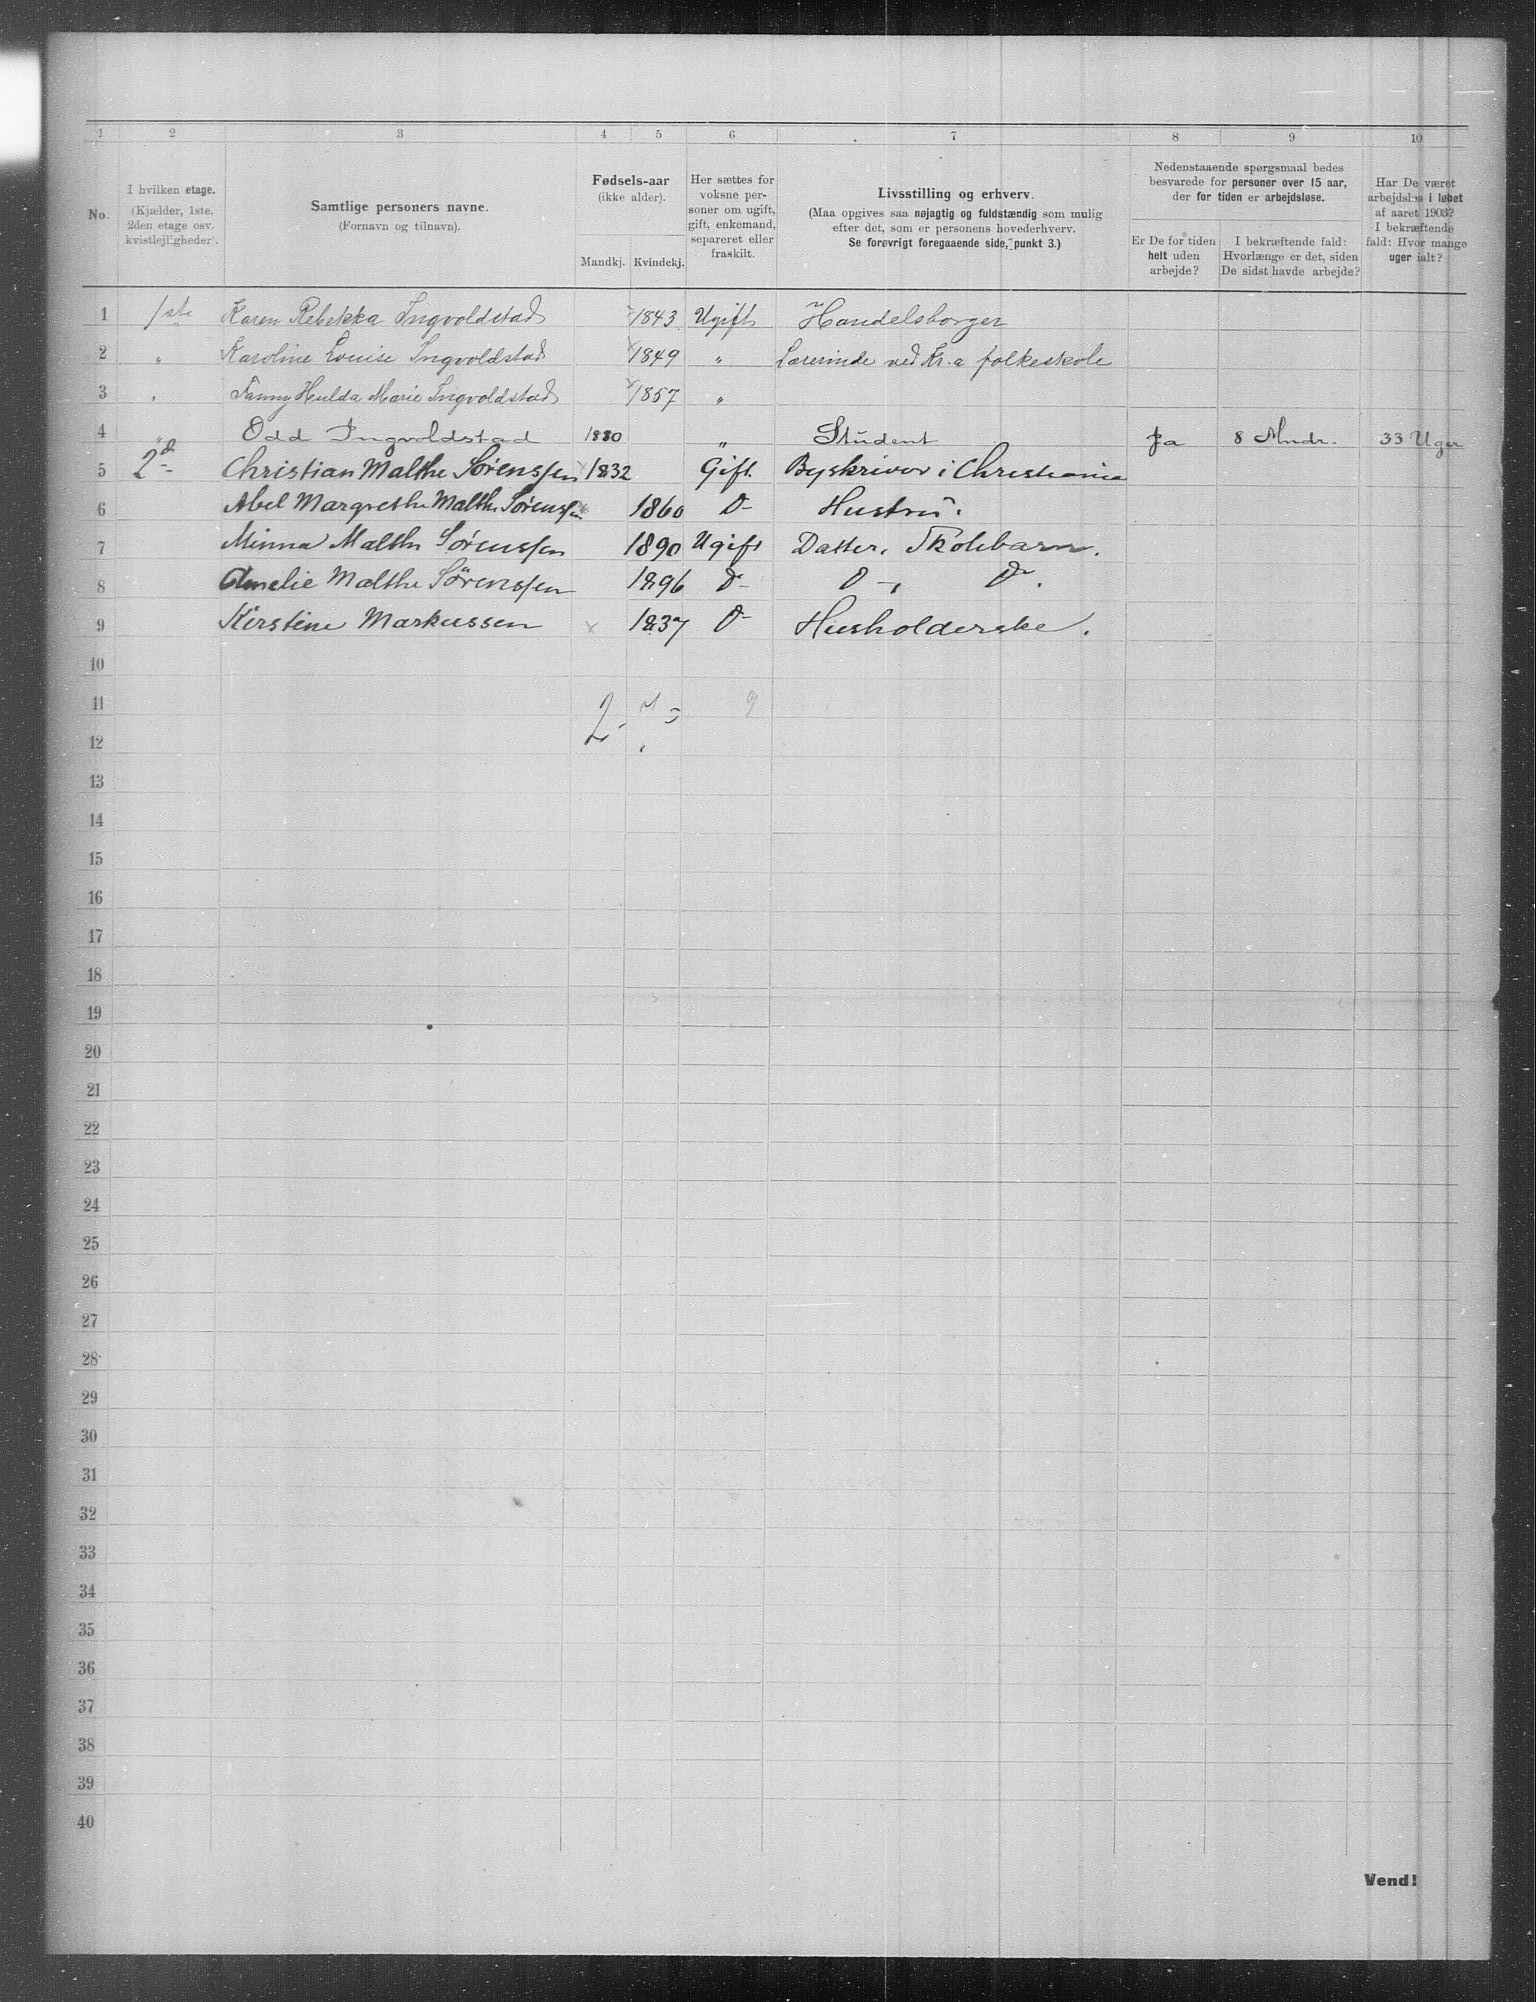 1 2 3 4 5 6 7 8 9 10
No.
I hvilken etage.
(Kjælder, 1ste,
2den etage osv.
kvistlejligheder).
Samtlige personers navne.
(Fornavn og tilnavn).
Fødsels-aar
(ikke alder).
Mandkj. Kvindekj.
Her sættes for
voksne per-
soner om ugift,
gift, enkemand,
separeret eller
fraskilt.
Livsstilling og erhverv.
(Maa opgives saa nøjagtig og fuldstændig som mulig
efter det, som er personens hovederhverv.
Se forøvrigt foregaaende side, punkt 3.)
Nedenstaaende spørgsmaal bedes
besvarede for personer over 15 aar,
der for tiden er arbejdsløse.
Er De for tiden
helt uden
arbejde?
I bekræftende fald:
Hvorlænge er det, siden
De sidst havde arbejde?
Har De været
arbejdsløs i løbet
af aaret 1903?
I bekræftende
fald: Hvor mange
uger ialt?
1 1ste Karen Rebekka Ingvoldstad 1843 Ugift Handelsborger
2 " Karoline Louise Ingvoldstad 1849 " Lærerinde ved Kr.a folkeskole
3 " Fanny Hulda Marie Ingvoldstad 1857 "
4 " Odd Ingvoldstad 1880 " Student Ja 8 Mndr. 33 Uger
5 2d. Christian Malthe Sørenssen 1832 Gift. Byskriver i Christiania
6 Abel Margrethe Malthe Sørenssen 1860 D- Hustru.
7 Minna Malthe Sørenssen 1890 Ugift Datter, Skolebarn.
8 Amelie Malthe Sørenssen 1896 D- D-, Do.
9 Kirstine Markussen 1837 D- Husholderske.
10
11
12
2 - 7 = 9
13
14
15
16
17
18
19
20
21
22
23
24
25
26
27
28
29
30
31
32
33
34
35
36
37
38
39
40
Vend!